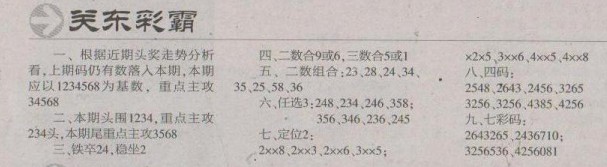 关东彩霸
一、根据近期头奖走势分析
看,上期码仍有数落入本期,本期
应以1234568为基数，重点主攻
34568
二、本期头围1234,重点主攻
234头,本期尾重点主攻3568
三、铁卒24,稳坐2
四、二数合9或6,三数合5或1
五、二数组合;23、28、24、34、
35、25、58、36
六、任选3;248、234、246、358;
356、346、236、245
七、定位2;
2××8、2××3、2××6、3××5;
×2×5、3××6、4××5、4××8
八、四码;
2548、2643、2456、3265
3256、3256、4385、4256
九、七彩码;
2643265、2436710;
3256536、4256081